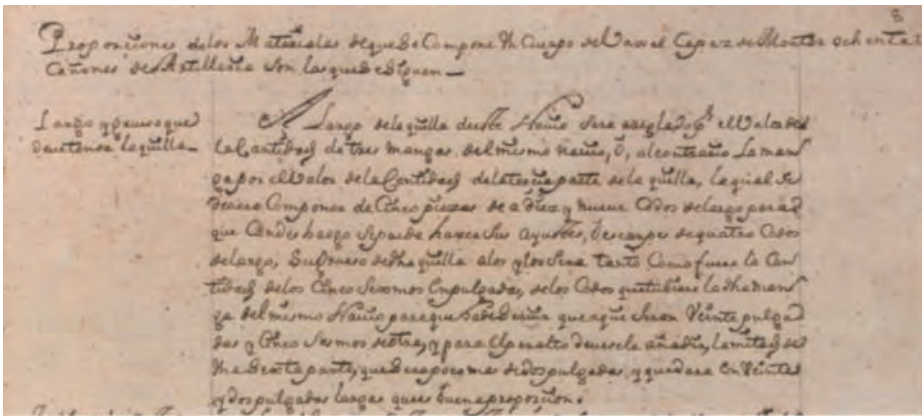 8
Proporciones delos Materiales deque se Compone Un Cuerpo de Vaxel Capaz de Montar ochenta
Cañones de Artilleria son las que se siguen
Largo y grueso que
deue tener la quilla
El Largo dela quilla deeste Nauio sera areglado pr. el Valor de
la Cantidad de tres mangas del mismo nauio, ô, al contrario La man
ga por el Valor dela Cantidad dela tercia parte dela quilla, la qual se
deuera Componer de Cinco piezas de a diez y nueue Codos de largo para
que Con des haogo se pueda hazer sus ajustes, de quatro Codos
de largo, Su grueso de dha quilla alos sera tanto Como fuere la Can
tidad delos Cinco Sesmos Enpulgadas, de los Codos que tubiere la dha man
ga del mismo Nauio para que que aqui seran Veinte pulga
das y Cinco Sesmos de otra, y para el peralto deuersele añadir, la mitad de
Una Sexta parte, que sera poco mas de dos pulgadas, y quedara en Veinte
y dos pulgadas largas que es buena proporcion.